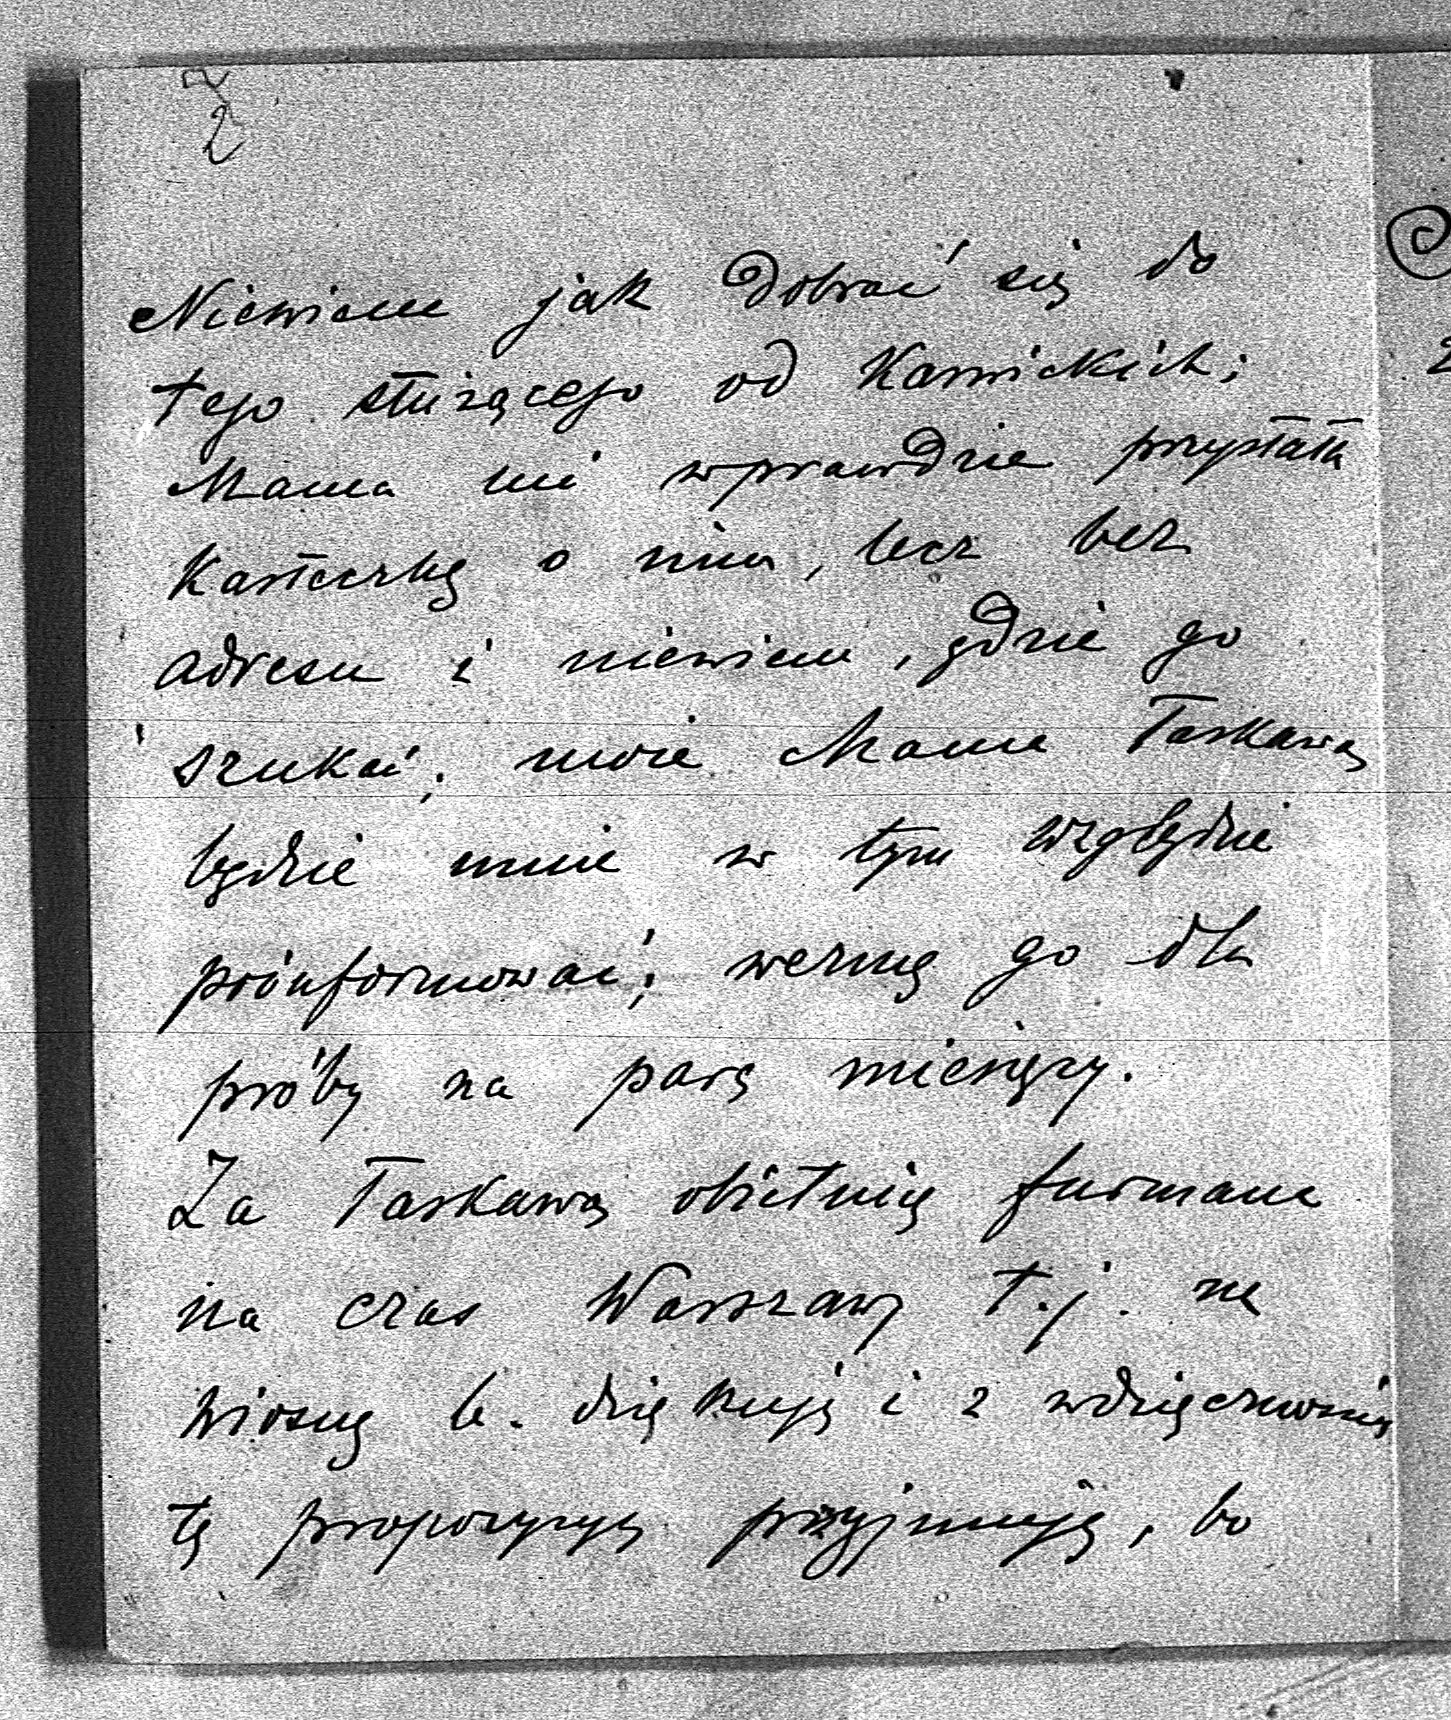 2
Niewiem jak dobrać się do
tego służącego od Karnickich;
Mama mi wprawdzie przysłała
karteczkę o nim, lecz bez
adresu i niewiem, gdzie go
szukać; może Mama łaskawą
będzie mnie w tym względzie
poinformować; wezmę go dla
próby na parę miesięcy.
Za łaskawą obietnicę furmana
na czas Warszawy t.j. na
wiosnę b. dziękuję i z wdzięcznością
tę propozycyę przyjmuję, bo